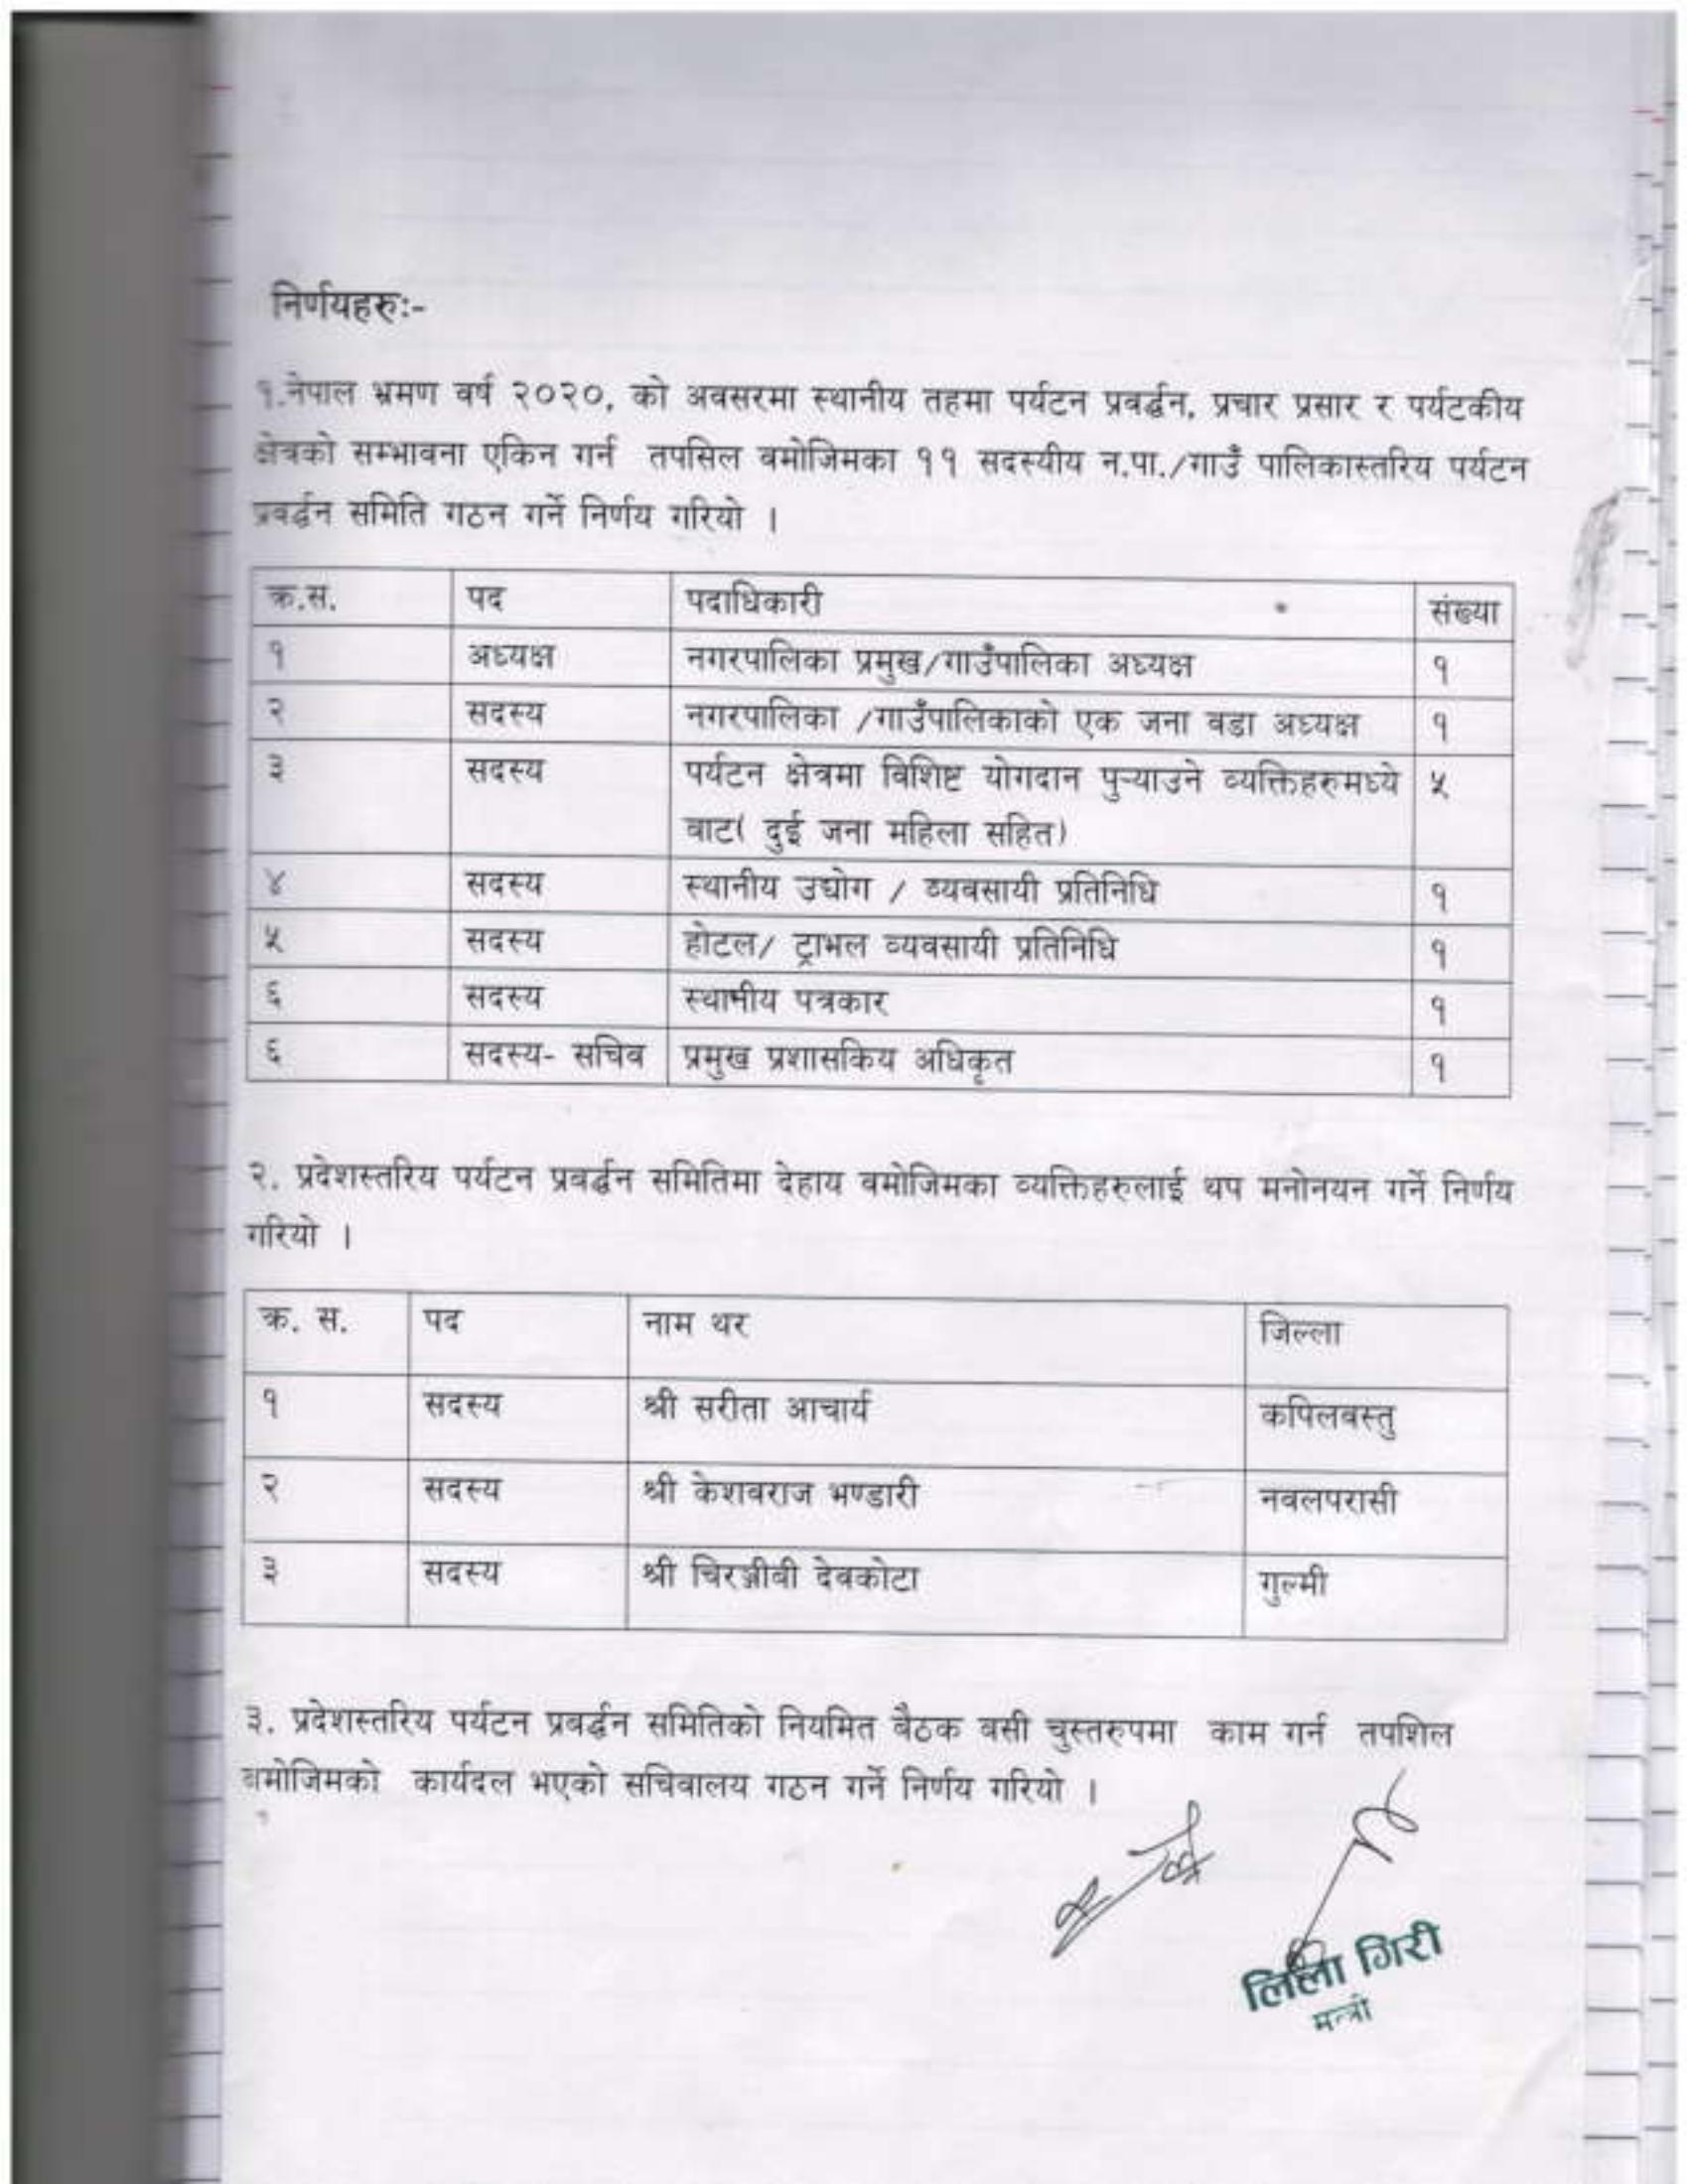 निर्णयहरुः-
१.नेपाल भ्रमण वर्ष २०२०, को अवसरमा स्थानीय तहमा पर्यटन प्रवर्द्धन, प्रचार प्रसार र पर्यटकीय
क्षेत्रको सम्भावना एकिन गर्न तपसिल बमोजिमका ११ सदस्यीय न.पा./गाउँ पालिकास्तरिय पर्यटन
प्रवर्द्धन समिति गठन गर्ने निर्णय गरियो ।
क्र.स. पद पदाधिकारी संख्या
१ अध्यक्ष नगरपालिका प्रमुख/गाउँपालिका अध्यक्ष १
२ सदस्य नगरपालिका /गाउँपालिकाको एक जना वडा अध्यक्ष १
३ सदस्य पर्यटन क्षेत्रमा विशिष्ट योगदान पुऱ्याउने व्यक्तिहरुमध्ये ५
बाट( दुई जना महिला सहित)
४ सदस्य स्थानीय उद्योग / व्यवसायी प्रतिनिधि १
५ सदस्य होटल/ ट्राभल व्यवसायी प्रतिनिधि १
६ सदस्य स्थानीय पत्रकार १
६ सदस्य- सचिव प्रमुख प्रशासकिय अधिकृत १
२. प्रदेशस्तरिय पर्यटन प्रवर्द्धन समितिमा देहाय बमोजिमका व्यक्तिहरुलाई थप मनोनयन गर्ने निर्णय
गरियो ।
क्र. स. पद नाम थर जिल्ला
१ सदस्य श्री सरीता आचार्य कपिलवस्तु
२ सदस्य श्री केशवराज भण्डारी नवलपरासी
३ सदस्य श्री चिरञ्जीवी देवकोटा गुल्मी
३. प्रदेशस्तरिय पर्यटन प्रवर्द्धन समितिको नियमित बैठक बसी चुस्तरुपमा काम गर्न तपशिल
बमोजिमको कार्यदल भएको सचिवालय गठन गर्ने निर्णय गरियो ।
लिला गिरी
मन्त्री